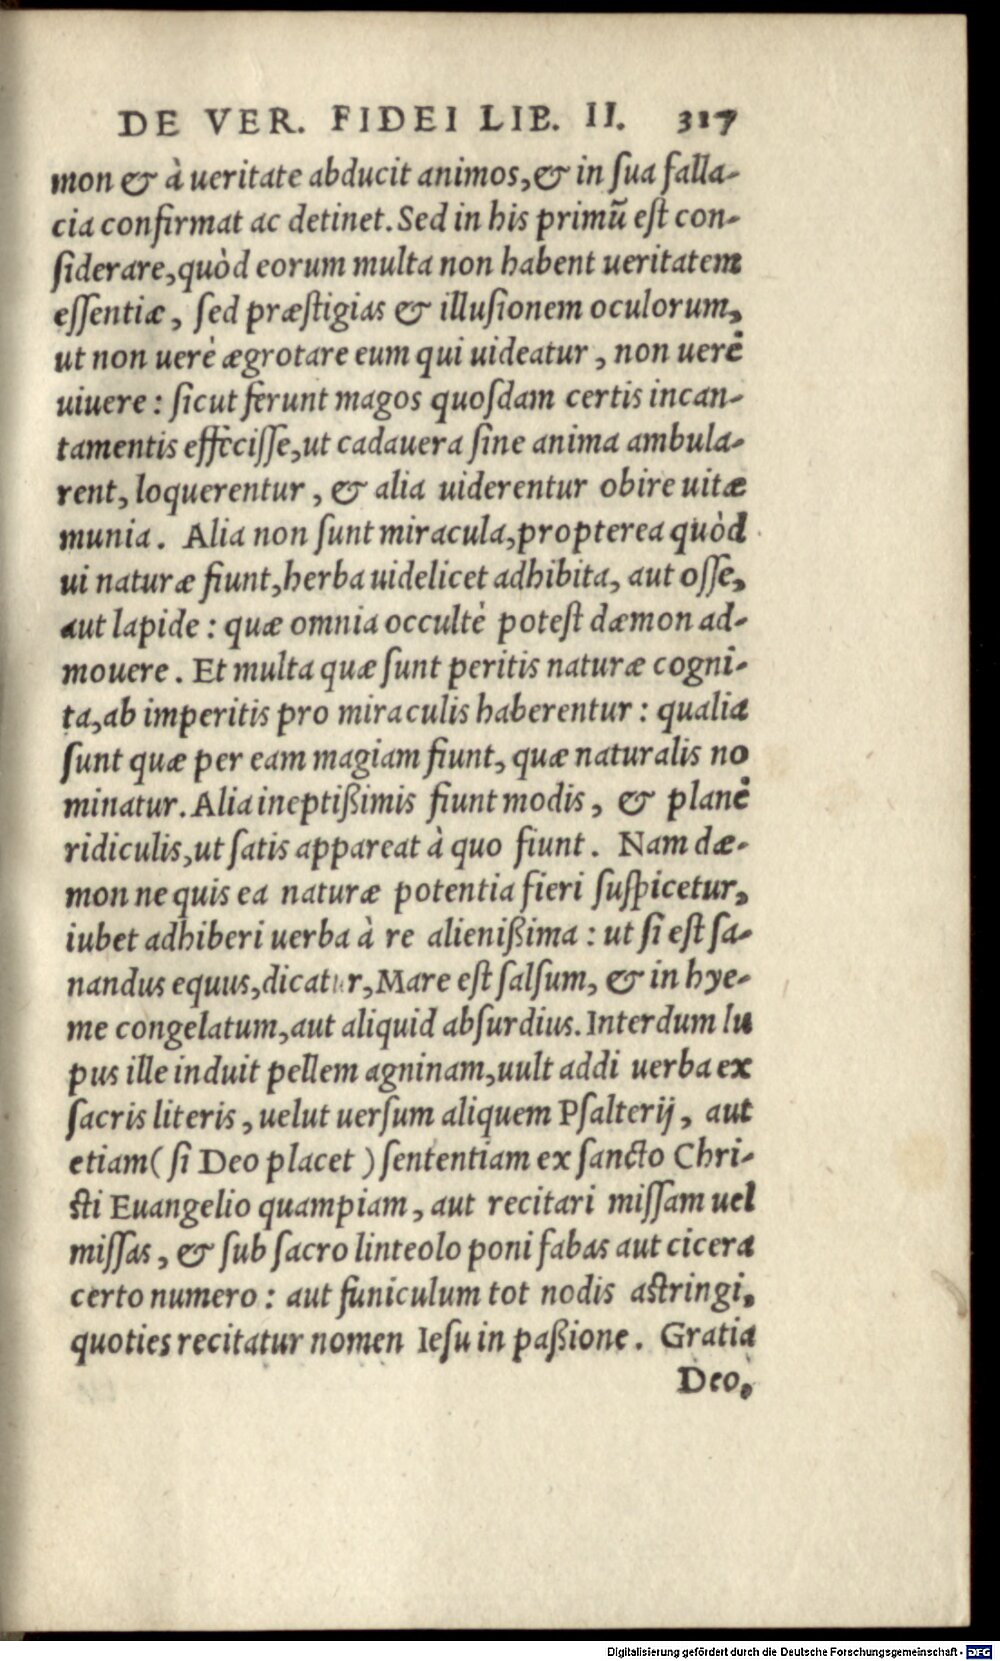 DE VER. FIDEI LIB. II. 317
mon & à ueritate abducit animos, & in ſua falla-
cia confirmat ac detinet. Sed in his primũ eſt con-
ſiderare, quòd eorum multa non habent ueritatem
eſſentiæ, ſed præſtigias & illuſionem oculorum,
ut non uerè ægrotare eum qui uideatur, non uerè
uiuere: ſicut ferunt magos quoſdam certis incan-
tamentis effeciſſe, ut cadauera ſine anima ambula-
rent, loquerentur, & alia uiderentur obire uitæ
munia. Alia non ſunt miracula, propterea quòd
ui naturæ fiunt, herba uidelicet adhibita, aut oſſe,
aut lapide: quæ omnia occultè poteſt dæmon ad-
mouere. Et multa quæ ſunt peritis naturæ cogni-
ta, ab imperitis pro miraculis haberentur: qualia
ſunt quæ per eam magiam fiunt, quæ naturalis no
minatur. Alia ineptißimis fiunt modis, & planè
ridiculis, ut ſatis appareat à quo fiunt. Nam dæ-
mon ne quis ea naturæ potentia fieri ſuſpicetur,
iubet adhiberi uerba à re alienißima: ut ſi eſt ſa-
nandus equus, dicatur, Mare eſt ſalſum, & in hye-
me congelatum, aut aliquid abſurdius. Interdum lu
pus ille induit pellem agninam, uult addi uerba ex
ſacris literis, uelut uerſum aliquem Pſalterij, aut
etiam (ſi Deo placet) ſententiam ex ſancto Chri-
ſti Euangelio quampiam, aut recitari miſſam uel
miſſas, & ſub ſacro linteolo poni fabas aut cicera
certo numero: aut funiculum tot nodis aſtringi,
quoties recitatur nomen Ieſu in paßione. Gratia
Deo,
Digitalisierung gefördert durch die Deutsche Forschungsgemeinschaft - DFG